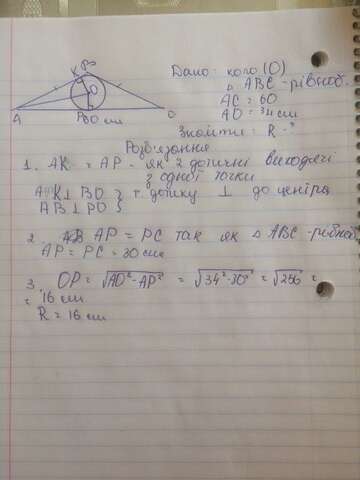 B
K
O
A
P 60 см
C
Дано: коло (O)
△ ABC - рівноб.
AC = 60
AO = 34 см
Знайти: R - ?
Розв'язання
1. AK = AP - як 2 дотичні виходячі
з одної точки
AK ⊥ BO } т. дотику ⊥ до центра
AB ⊥ PO }
2. AP = PC так як △ ABC - рівноб.
AP = PC = 30 см
3. OP = √AO² - AP² = √34² - 30² = √256 =
= 16 см
R = 16 см